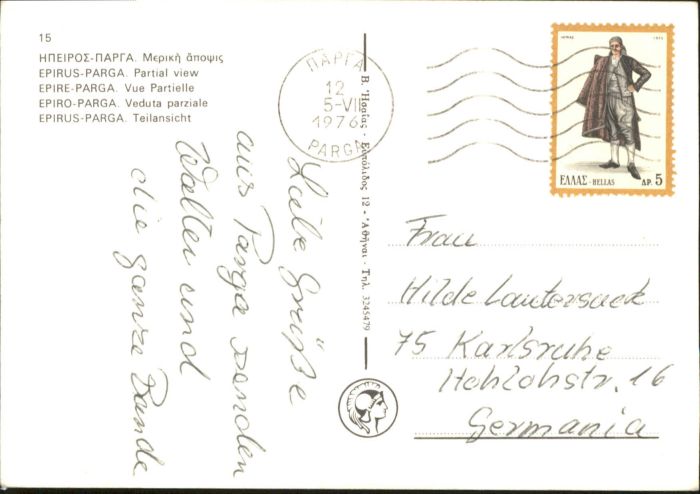 15
ΗΠΕΙΡΟΣ-ΠΑΡΓΑ. Μερικὴ ἄποψις
EPIRUS-PARGA. Partial view
EPIRE-PARGA. Vue Partielle
EPIRO-PARGA. Veduta parziale
EPIRUS-PARGA. Teilansicht
ΠΑΡΓΑ
12
5-VII
1976
PARGA
1973
ΕΛΛΑΣ-HELLAS ΔΡ. 5
Liebe Grüße
aus Parga senden
Walter und
die ganze Bande
12 - Ἀθῆναι - Τηλ. 3245479
Frau
Hilde
75 Karlsruhe
Hohlohstr. 16
Germania